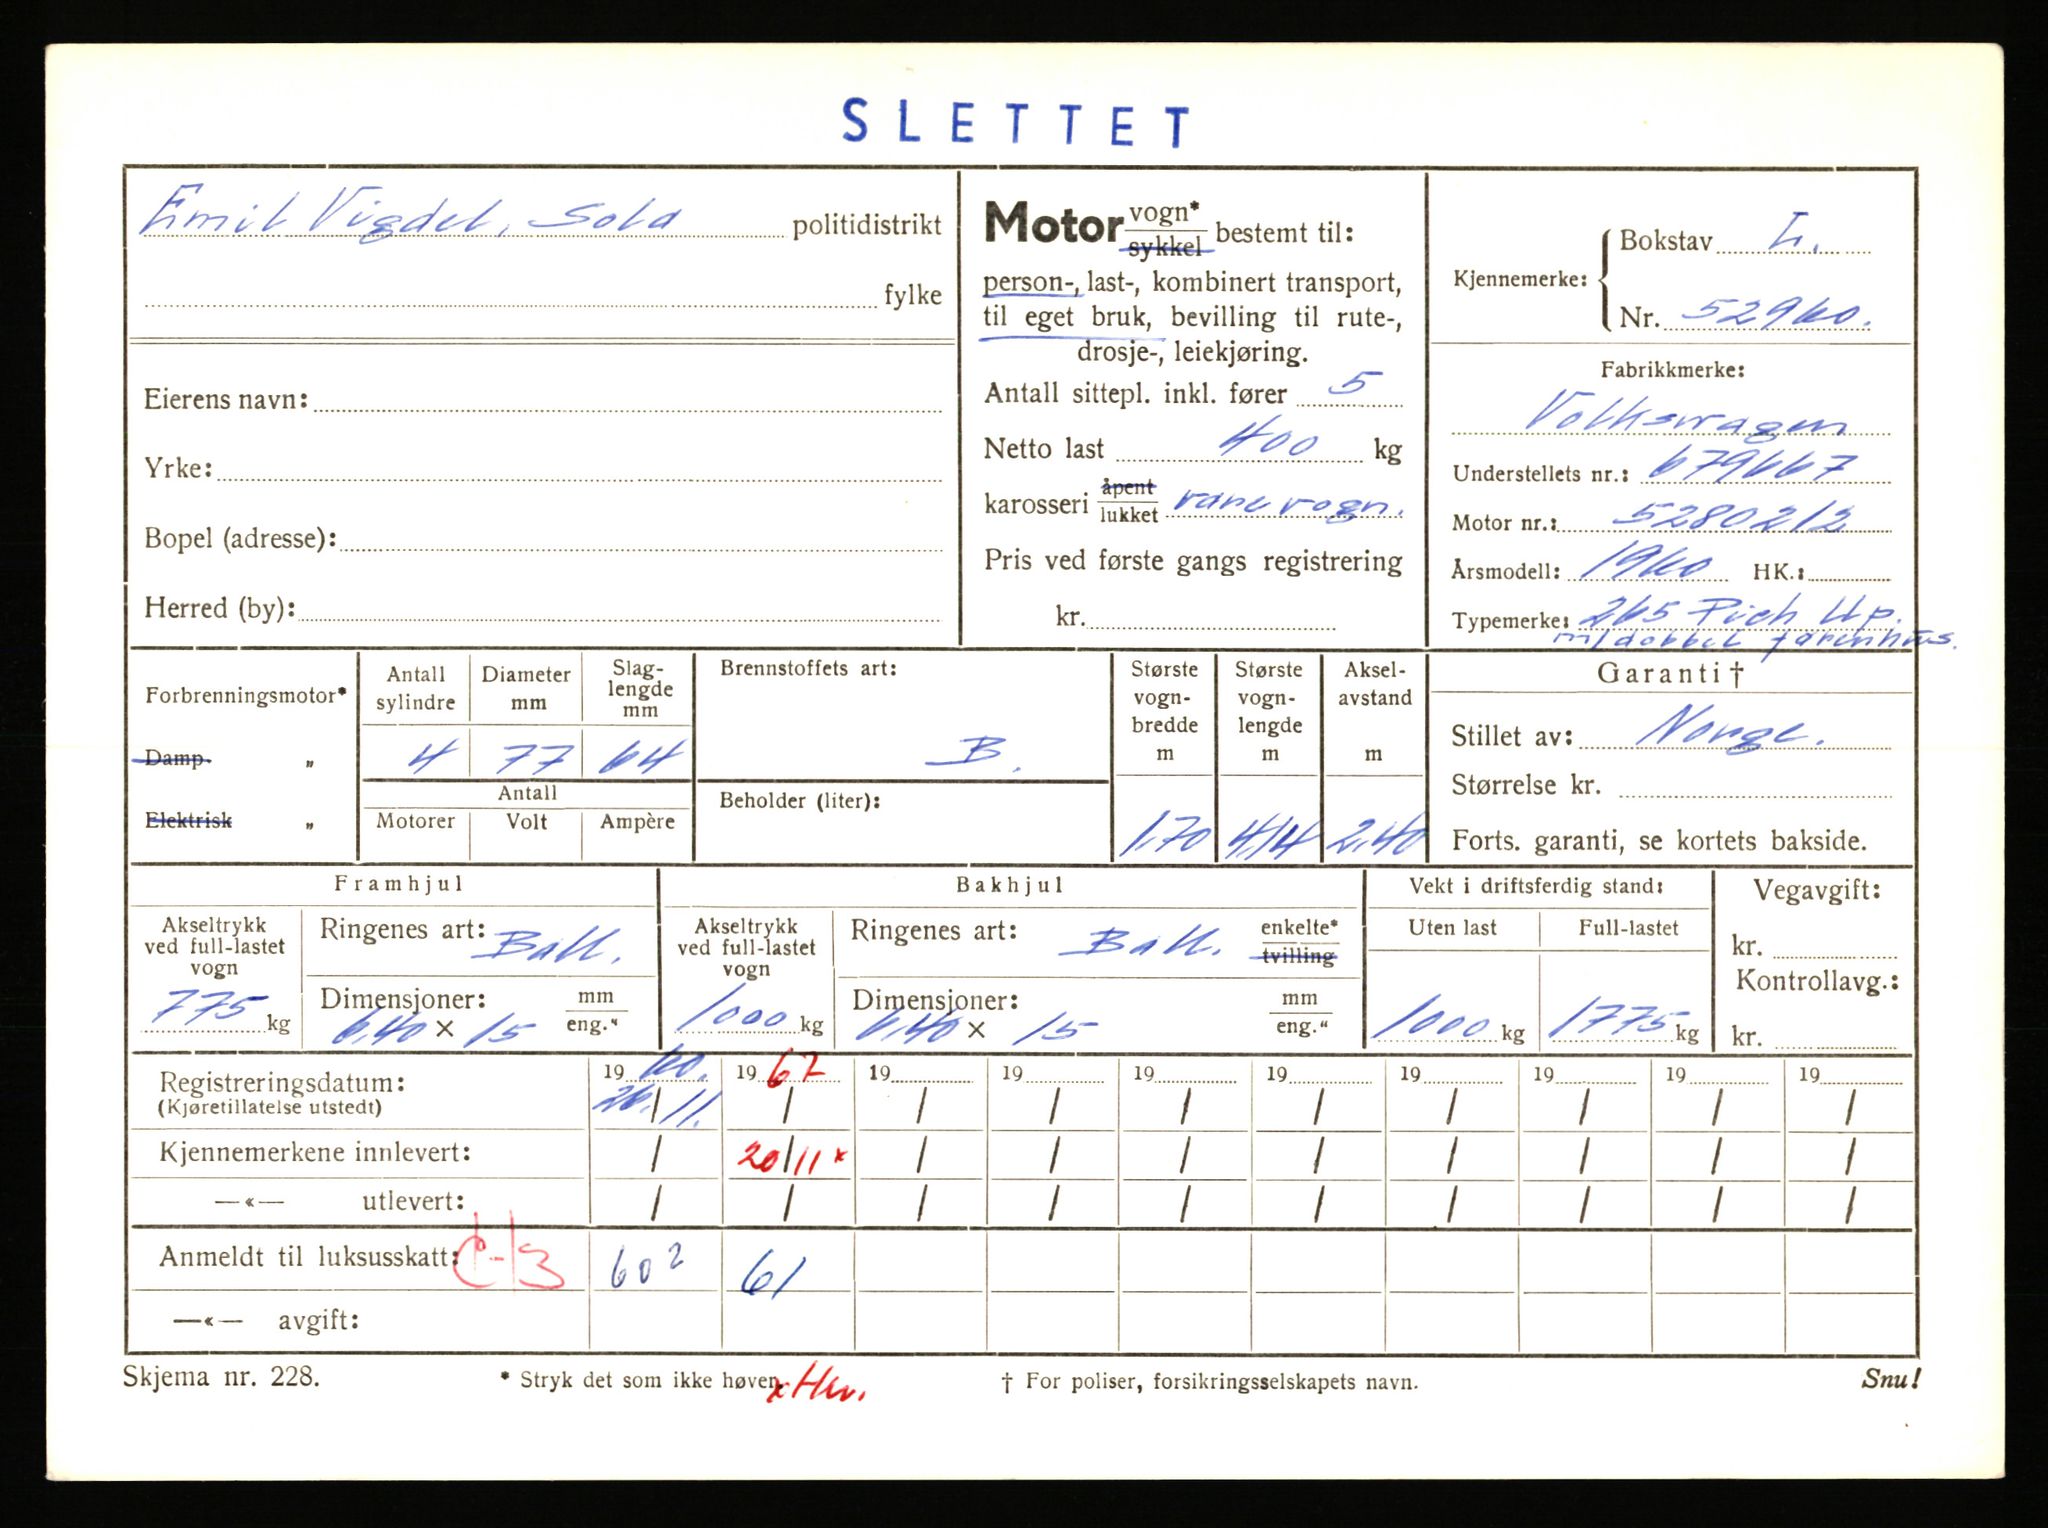 SLETTET
Emil Vigdel, Sola politidistrikt
fylke
Eierens navn:
Yrke:
Bopel (adresse):
Herred (by):
Motor vogn* / sykkel bestemt til:
person-, last-, kombinert transport,
til eget bruk, bevilling til rute-,
drosje-, leiekjøring.
Antall sittepl. inkl. fører 5
Netto last 400 kg
karosseri åpent / lukket varevogn.
Pris ved første gangs registrering
kr.
Kjennemerke: Bokstav L.
Nr. 52960.
Fabrikkmerke:
Volkswagen
Understellets nr.: 679667
Motor nr.: 5280212
Årsmodell: 1960 HK.:
Typemerke: 265 Pick Up.
m/dobbel førerhus.
Forbrenningsmotor*
Damp „
Elektrisk „
Antall sylindre 4
Diameter mm 77
Slag-lengde mm 64
Antall
Motorer Volt Ampère
Brennstoffets art: B.
Beholder (liter):
Største vogn-bredde m 1,70
Største vogn-lengde m 4,14
Aksel-avstand m 2,40
Garanti †
Stillet av: Norge.
Størrelse kr.
Forts. garanti, se kortets bakside.
Framhjul
Akseltrykk ved full-lastet vogn 775 kg
Ringenes art: Ball.
Dimensjoner: 6,40 × 15 mm / eng."
Bakhjul
Akseltrykk ved full-lastet vogn 1000 kg
Ringenes art: Ball. enkelte* / tvilling
Dimensjoner: 6,40 × 15 mm / eng."
Vekt i driftsferdig stand:
Uten last 1000 kg
Full-lastet 1775 kg
Vegavgift:
kr.
Kontrollavg.:
kr.
Registreringsdatum: 1960. 1967 19 19 19 19 19 19 19 19
(Kjøretillatelse utstedt) 26./11. / / / / / / / / /
Kjennemerkene innlevert: / 20/11 x / / / / / / / /
—«— utlevert: / / / / / / / / / /
Anmeldt til luksusskatt: C-13 602 61
—«— avgift:
Skjema nr. 228. * Stryk det som ikke høver. x Hkv. † For poliser, forsikringsselskapets navn. Snu!